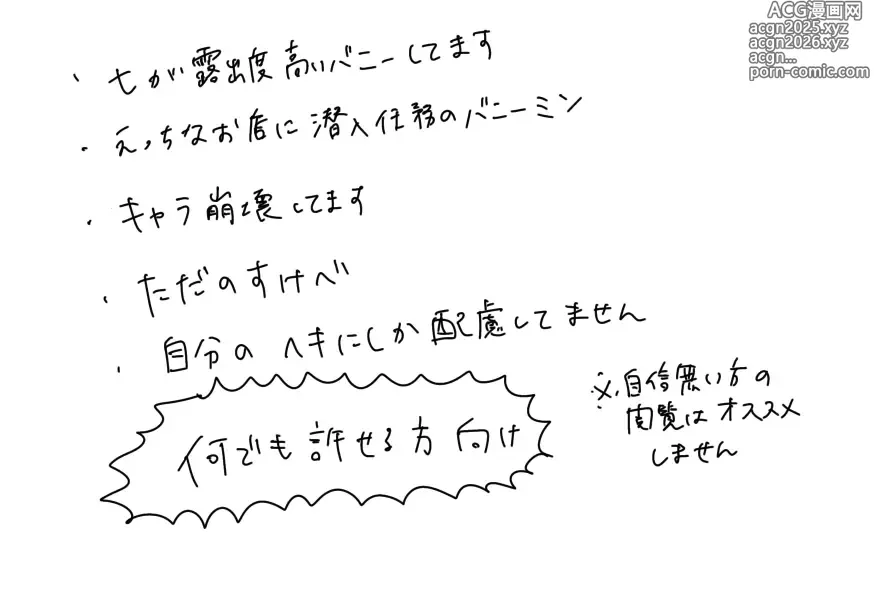 ACG漫画网
acgn2025.xyz
acgn2026.xyz
acgn...
porn-comic.com
・七が露出度高いバニーしてます
・えっちなお店に潜入任務のバニーミン
・キャラ崩壊してます
・ただのすけべ
・自分のヘキにしか配慮してません
何でも許せる方向け
※自信無い方の
閲覧はオススメ
しません